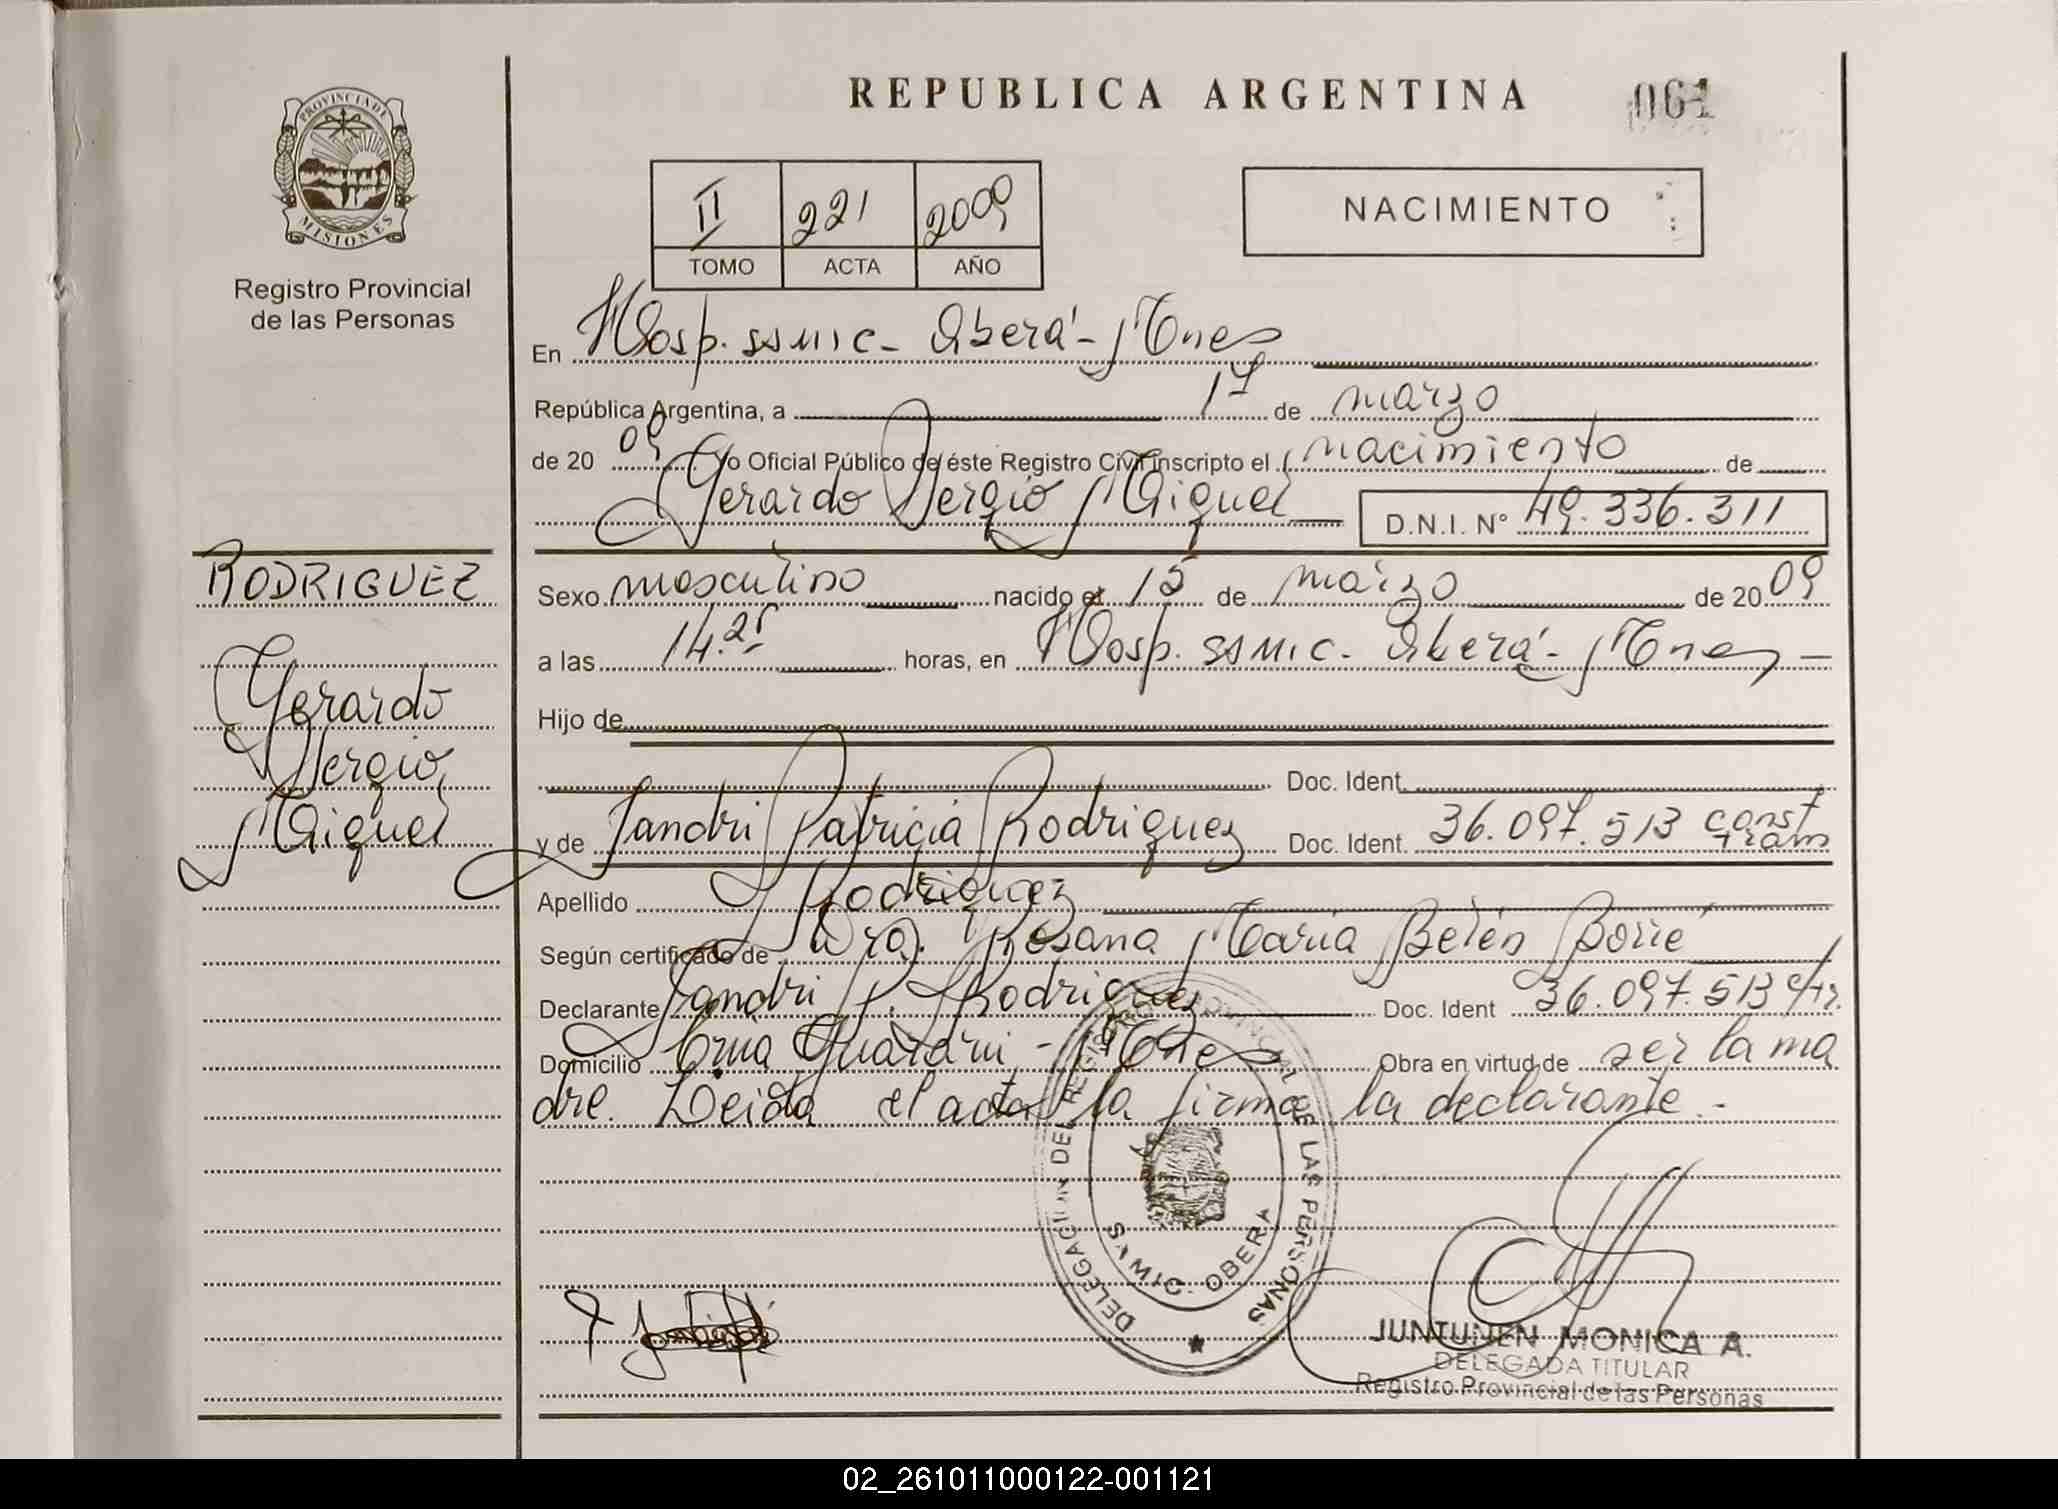 REPUBLICA ARGENTINA
061
PROVINCIA DE
MISIONES
Registro Provincial
de las Personas
II 221 2009
TOMO ACTA AÑO
NACIMIENTO
En Hosp. SSMIC- Oberá- Mnes
República Argentina, a 17 de marzo
de 20 09 Yo Oficial Público de éste Registro Civil inscripto el nacimiento de
Gerardo Sergio Miguel D.N.I. N° 49.336.311
RODRIGUEZ
Gerardo
Sergio
Miguel
Sexo masculino nacido el 15 de marzo de 20 09
a las 14.25 horas, en Hosp. SSMIC- Oberá- Mnes -
Hijo de
Doc. Ident.
y de Sandri Patricia Rodriguez Doc. Ident. 36.097.513 const tram
Apellido Rodriguez
Según certificado de Dra. Rosana María Belén Borré
Declarante Sandri P. Rodriguez Doc. Ident 36.097.513 c/tr.
Domicilio Cnia Guaraní - Mnes Obra en virtud de ser la ma
dre. Leida el acta la firma la declarante.-
DELEGACION DEL REGISTRO PROVINCIAL DE LAS PERSONAS
OBERA
JUNTUNEN MONICA A.
DELEGADA TITULAR
Registro Provincial de las Personas
02_261011000122-001121